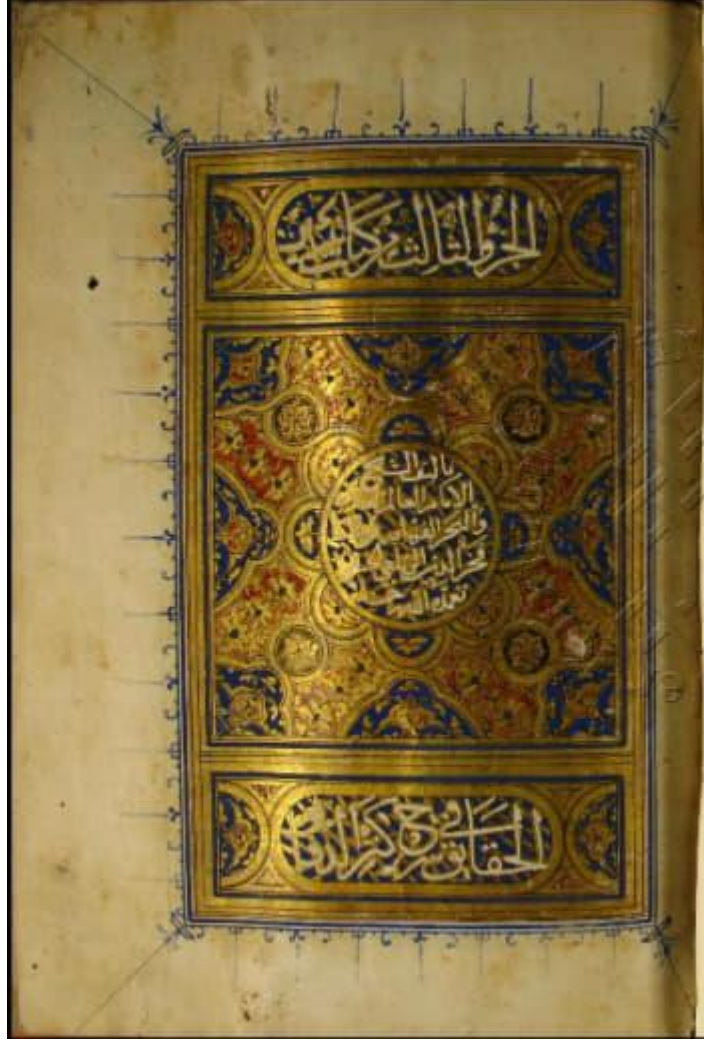 الجزء الثالث من كتاب تبيين
تأليف الشيخ
الامام العالم
والبحر الفهامه
فخر الدين الزيلعي
تغمده الله برحمته
الحقائق في شرح كنز الدقائق